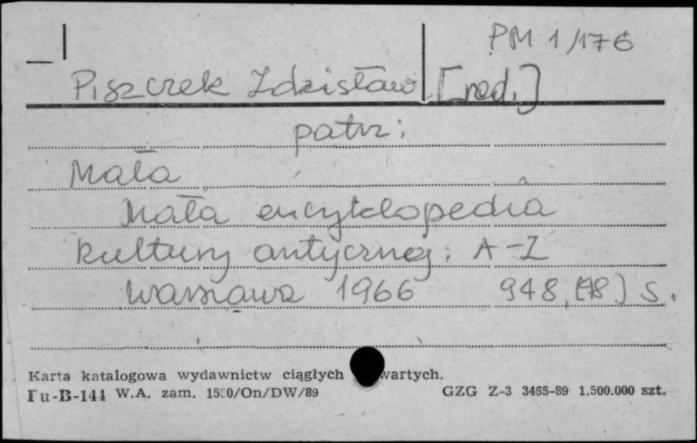 PM 1/176
Piszczek Zdzisław [red.]
patrz:
Mała
Mała encyklopedia
kultury antycznej: A-Z
Warszawa 1966 948, [48] s.
Karta katalogowa wydawnictw ciągłych wartych.
Pu-B-141 W.A. zam. /On/DW/89 GZG Z-3 3465-89 1.500.000 szt.